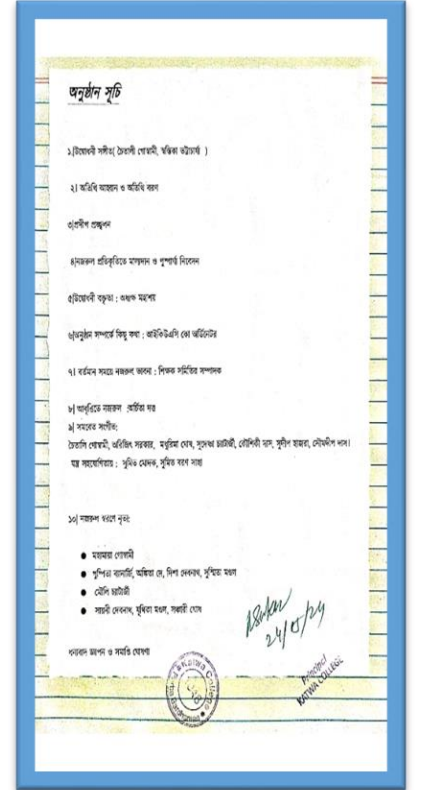 অনুষ্ঠান সূচি
১।উদ্বোধনী সঙ্গীত( চৈতালী গোস্বামী, স্বস্তিকা ভট্টাচার্য্য )
২। অতিথি আহ্বান ও অতিথি বরণ
৩।প্রদীপ প্রজ্জ্বলন
৪।নজরুল প্রতিকৃতিতে মাল্যদান ও পুষ্পার্ঘ্য নিবেদন
৫।উদ্বোধনী বক্তৃতা : অধ্যক্ষ মহাশয়
৬।অনুষ্ঠান সম্পর্কে কিছু কথা : আইকিউএসি কো অর্ডিনেটর
৭। বর্তমান সময়ে নজরুল ভাবনা : শিক্ষক সমিতির সম্পাদক
৮। আবৃত্তিতে নজরুল :অর্চিতা দত্ত
৯। সমবেত সংগীত:
চৈতালি গোস্বামী, অরিজিৎ সরকার, মধুরিমা ঘোষ, সুদেষ্ণা চ্যাটার্জী, কৌশিকী দাস, সুদীপ হাজরা, সৌম্যদীপ দাস।
যন্ত্র সহযোগিতায় : সুমিত মোদক, সুমিত বরণ সাহা
১০। নজরুল স্মরণে নৃত্য:
● মহামায়া গোস্বামী
● পুষ্পিতা ব্যানার্জি, অঙ্কিতা দে, দিশা দেবনাথ, সুস্মিতা মণ্ডল
● মৌলি চ্যাটার্জী
● সায়নী দেবনাথ, যূথিকা মণ্ডল, সঞ্চারী ঘোষ
24/05/24
ধন্যবাদ জ্ঞাপন ও সমাপ্তি ঘোষণা
Katwa College
Principal
KATWA COLLEGE